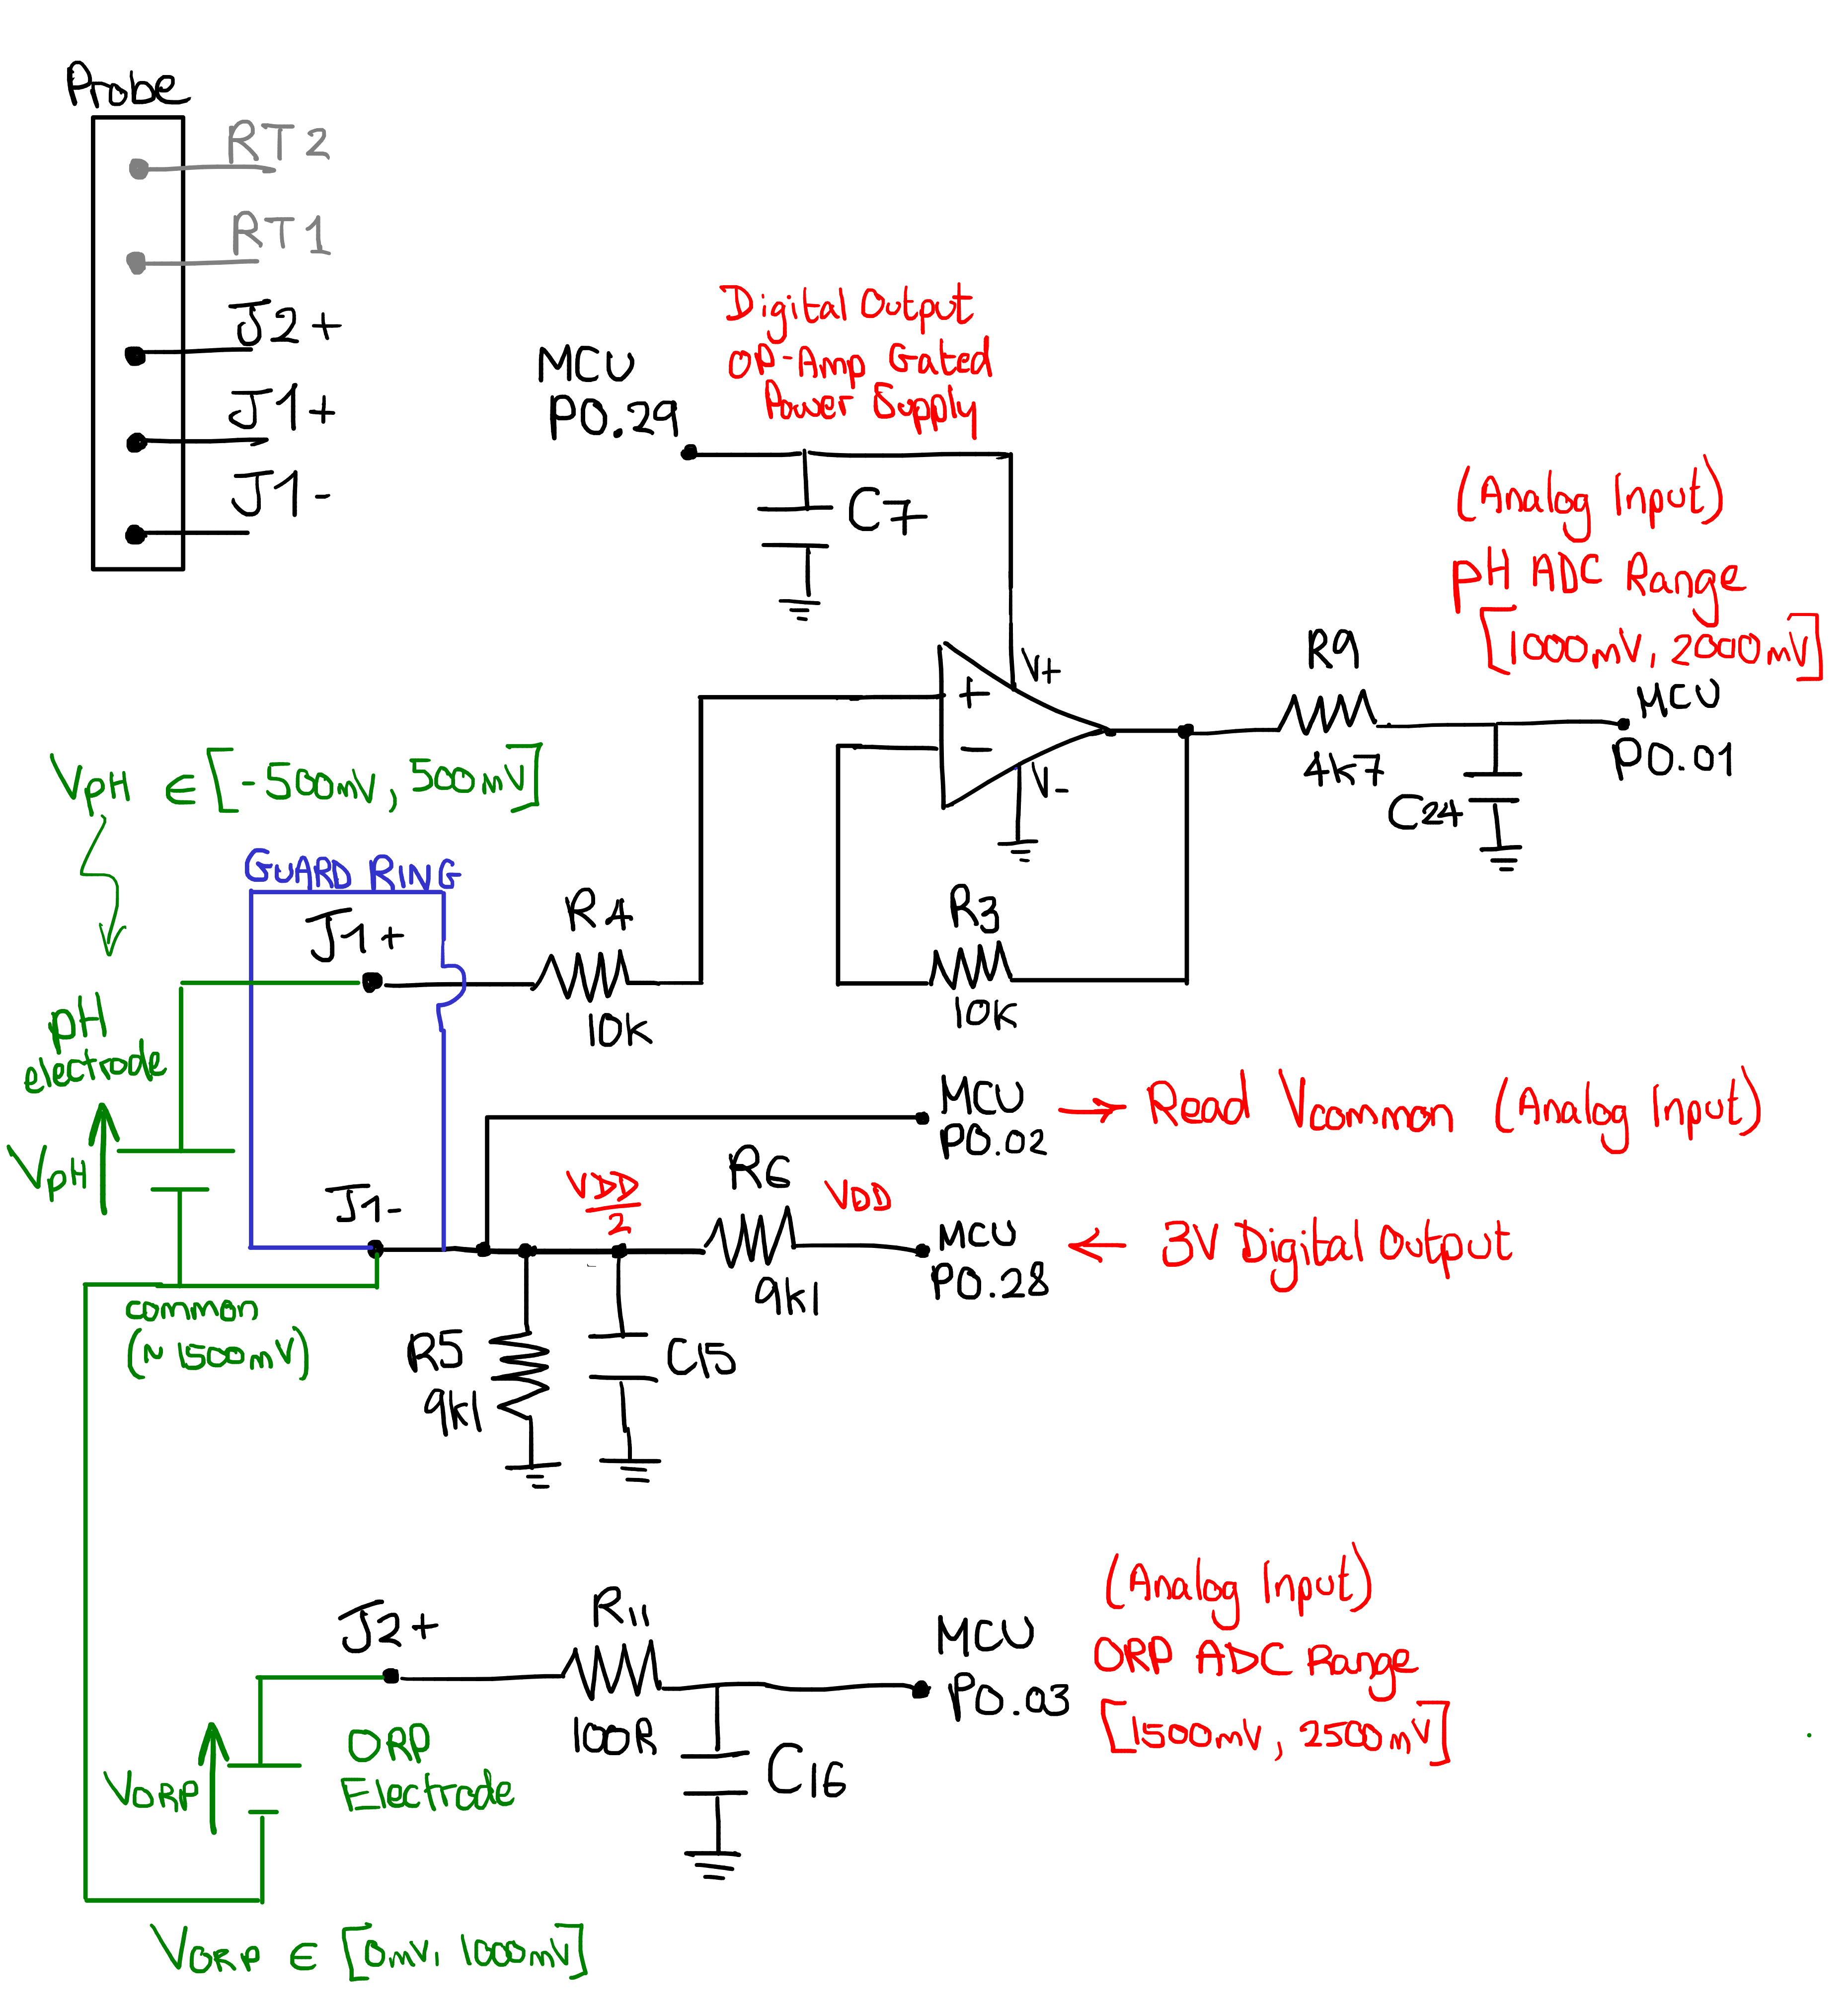 Probe
RT2
RT1
J2+
J1+
J1-
Digital Output
OP-Amp Gated
Power Supply
MCU
P0.29
C7
(Analog Input)
pH ADC Range
[1000mV, 2000mV]
MCU
P0.01
R9
4k7
C24
V+
+
-
V-
VpH ∈ [-500mV, 500mV]
GUARD RING
J1+
R4
10k
R3
10k
pH
electrode
VpH
J1-
common
(~1500mV)
MCU
P0.02
→ Read Vcommon (Analog Input)
VDD
2
R6
9k1
VDD
MCU
P0.28
← 3V Digital Output
R5
9k1
C15
J2+
R11
100R
C16
MCU
P0.03
(Analog Input)
ORP ADC Range
[1500mV, 2500mV]
ORP
Electrode
VORP
VORP ∈ [0mV, 1000mV]